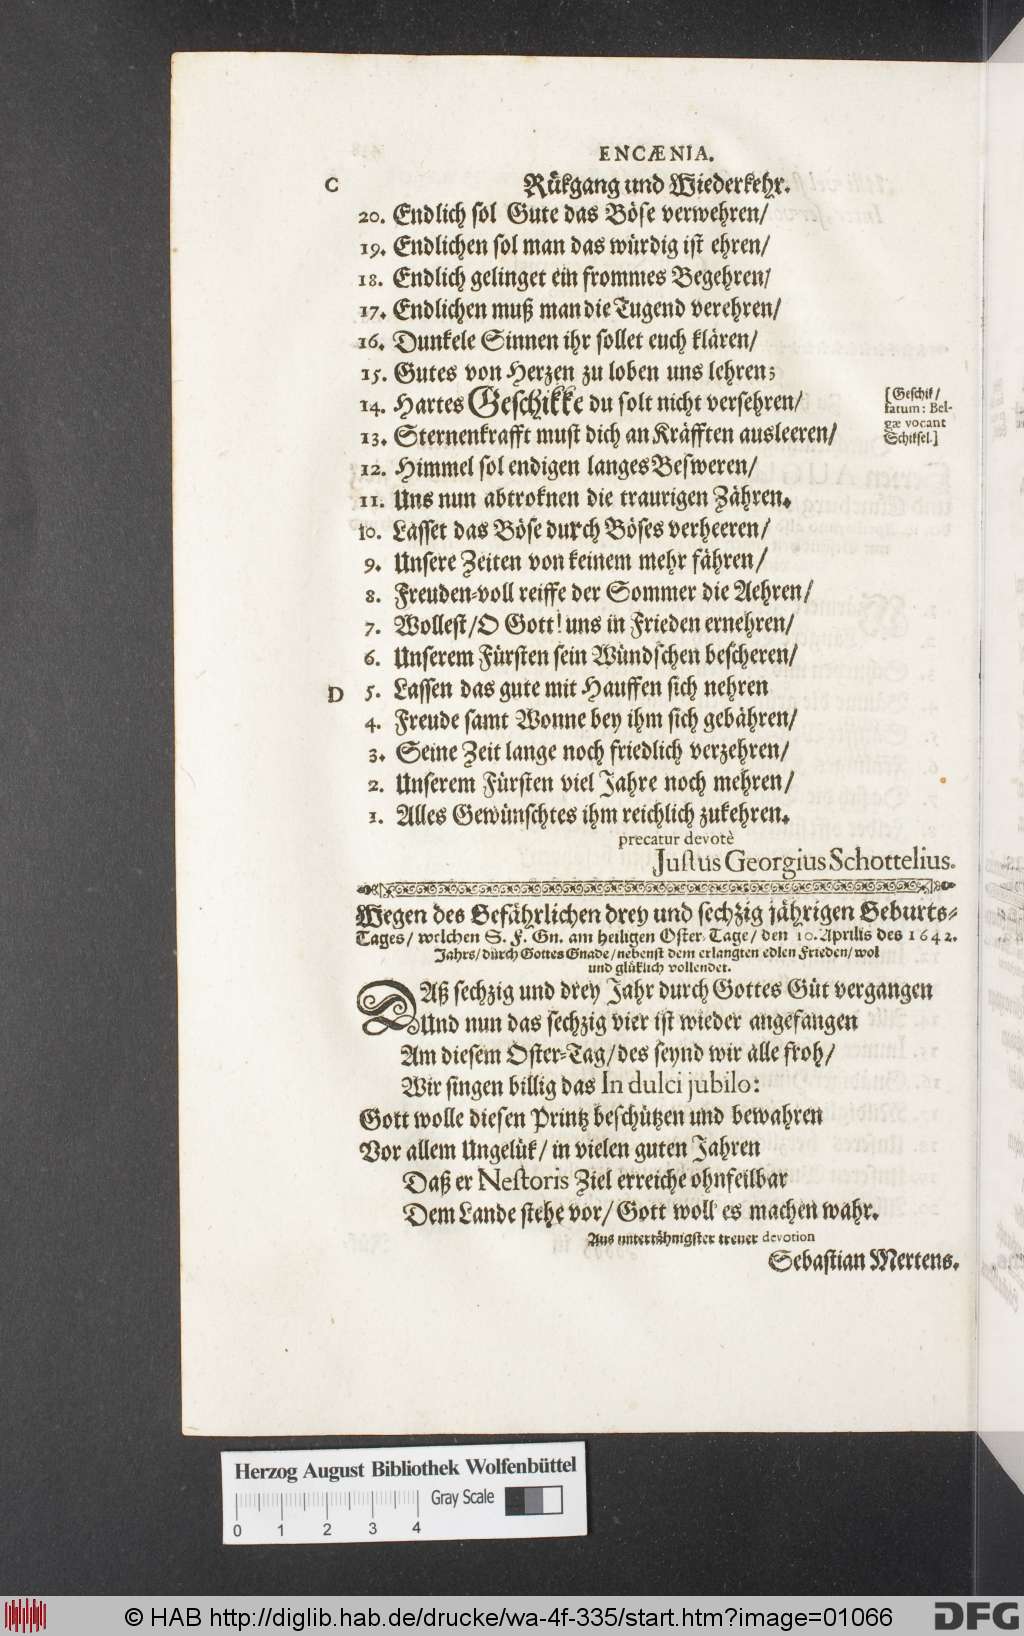 ENCÆNIA.
C
Rükgang und Wiederkehr.
20. Endlich sol Gute das Böse verwehren/
19. Endlichen sol man das würdig ist ehren/
18. Endlich gelinget ein frommes Begehren/
17. Endlichen muß man die Tugend verehren/
16. Dunkele Sinnen ihr sollet euch klären/
15. Gutes von Herzen zu loben uns lehren;
14. Hartes Geschikke du solt nicht versehren/
[Geschik/
fatum: Bel-
gæ vocant
Schiksel.]
13. Sternenkrafft must dich an Kräfften ausleeren/
12. Himmel sol endigen langes Besweren/
11. Uns nun abtroknen die traurigen Zähren.
10. Lasset das Böse durch Böses verheeren/
9. Unsere Zeiten von keinem mehr fähren/
8. Freuden-voll reiffe der Sommer die Aehren/
7. Wollest/ O Gott! uns in Frieden ernehren/
6. Unserem Fürsten sein Wündschen bescheren/
D
5. Lassen das gute mit Hauffen sich nehren
4. Freude samt Wonne bey ihm sich gebähren/
3. Seine Zeit lange noch friedlich verzehren/
2. Unserem Fürsten viel Jahre noch mehren/
1. Alles Gewünschtes ihm reichlich zukehren.
precatur devotè
Justus Georgius Schottelius.
Wegen des Gefährlichen drey und sechzig jährigen Geburts-
Tages/ welchen S. F. Gn. am heiligen Oster-Tage/ den 10. Aprilis des 1642.
Jahrs/ durch Gottes Gnade/ nebenst dem erlangten edlen Frieden/ wol
und glüklich vollendet.
Daß sechzig und drey Jahr durch Gottes Güt vergangen
Und nun das sechzig vier ist wieder angefangen
Am diesem Oster-Tag/ des seynd wir alle froh/
Wir singen billig das In dulci jubilo:
Gott wolle diesen Printz beschützen und bewahren
Vor allem Ungelük/ in vielen guten Jahren
Daß er Nestoris Ziel erreiche ohnfeilbar
Dem Lande stehe vor/ Gott woll es machen wahr.
Aus untertähnigster treuer devotion
Sebastian Mertens.
Herzog August Bibliothek Wolfenbüttel
Gray Scale
0 1 2 3 4
© HAB http://diglib.hab.de/drucke/wa-4f-335/start.htm?image=01066
DFG